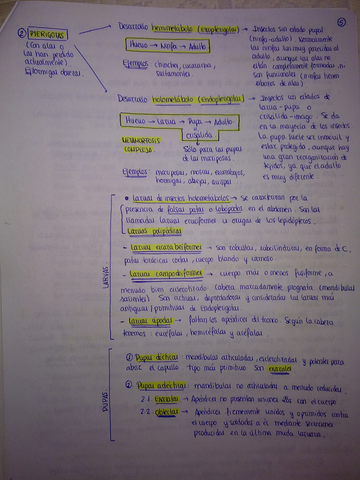 ② PTERIGOTAS
(Con alas o las han perdido actualmente)
Desarrollo hemimetábolo (Exopterigotas) → Insectos sin estado pupal (ninfa-adulto). Normalmente las ninfas son muy parecidas al adulto, aunque las alas no están completamente formadas ni son funcionales
Huevo → Ninfa → Adulto
Ejemplos chinches, cucarachas, saltamontes.
Desarrollo holometábolo (Endopterigotas) → Insectos con estados de larva - pupa o crisálida - imago. Se da en la mayoría de los insectos. La pupa suele ser inmóvil y estar protegida, aunque hay una gran reorganización de tejidos, ya que el adulto es muy diferente
Huevo → Larva → Pupa → Adulto
crisálida
METAMORFOSIS COMPLEJA
Sólo para las pupas de las mariposas
Ejemplos mariposas, moscas, escarabajos, hormigas, abejas, avispas
LARVAS
Larvas de insectos holometábolos → Se caracterizan por la
presencia de falsas patas o lobópodos en el abdomen. Son las
llamadas larvas eruciformes u orugas de los lepidópteros.
Larvas polípodas
- Larvas escarabeiformes → son robustas, subcilíndricas, en forma de C,
patas torácicas cortas, cuerpo blando y
- Larvas campodeiformes → cuerpo más o menos fusiforme, a
menudo bien esclerotizado. Cabeza marcadamente prognata (mandíbulas
salientes). Son activas, depredadoras y consideradas las larvas más
antiguas/primitivas de endopterigotas
- Larvas ápodas → faltan los apéndices del tórax. Según la cabeza
tenemos: eucéfalas, hemicéfalas y acéfalas
PUPAS
① Pupas décticas: mandíbulas articuladas, esclerotizadas y potentes para
abrir el capullo. Tipo más primitivo. Son exaratas
② Pupas adécticas: mandíbulas no articuladas a menudo reducidas.
2.1. Exaratas → Apéndices no presentan unión ellas con el cuerpo
2.2. Obtectas → Apéndices firmemente unidos y oprimidos contra
el cuerpo y soldados a él mediante secreciones
producidas en la última muda larvaria.